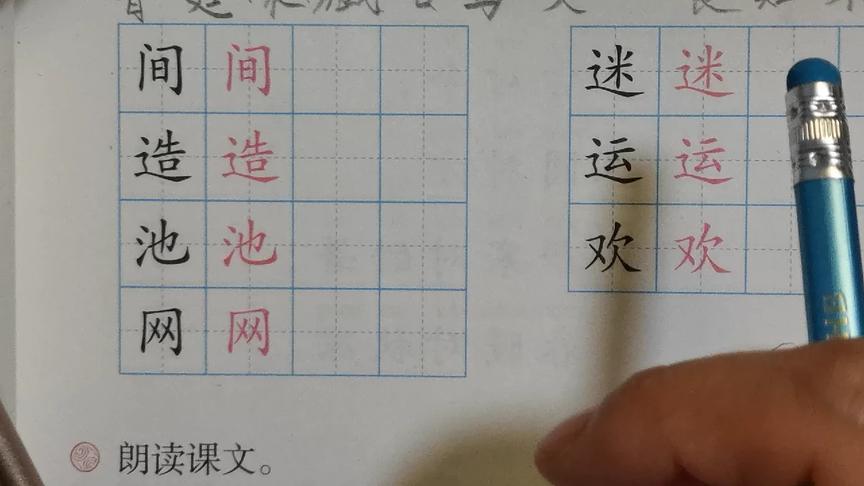 间 间 迷 迷
造 造 运 运
池 池 欢 欢
网 网
朗读课文。